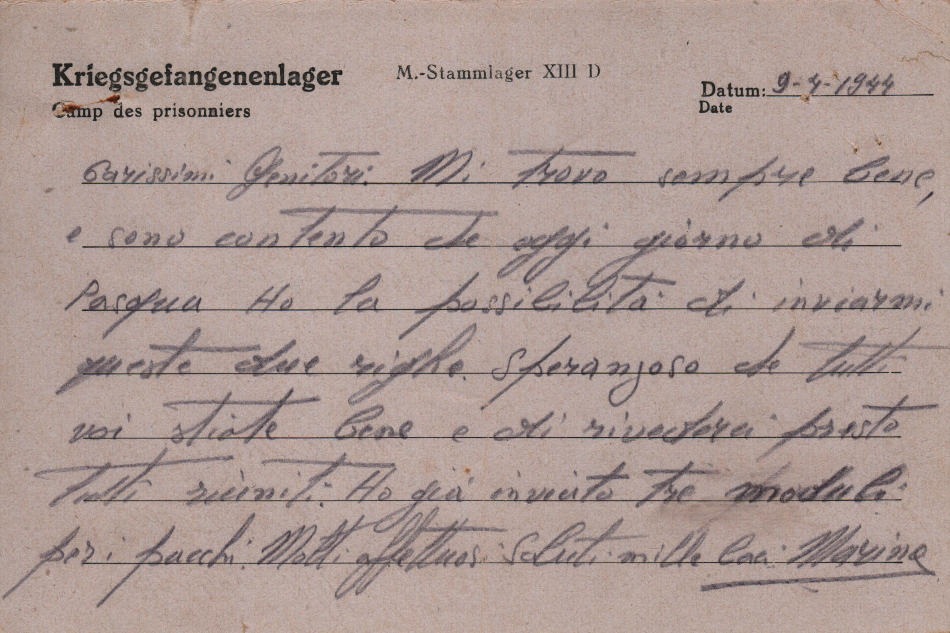 Kriegsgefangenenlager
M.-Stammlager XIII D
Datum: 9-4-1944
Camp des prisonniers
Date
Carissimi Genitori. Mi trovo sempre bene,
e sono contento che oggi giorno di
Pasqua Ho la possibilità di inviarmi
queste due righe. Speranzoso che tutti
voi stiate bene e di rivederci presto
tutti riuniti. Ho già inviato tre moduli
per i pacchi. Molti affettuosi saluti mille baci